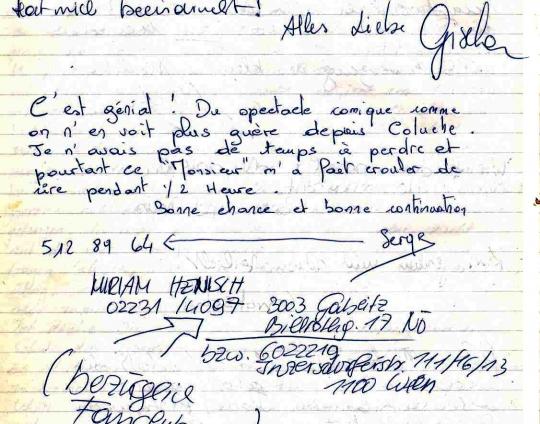 hat mich beeindruckt!
Alles Liebe Gisela
C'est génial ! Du spectacle comique comme
on n'en voit plus guère depuis Coluche.
Je n'avais pas de temps à perdre et
pourtant ce "Monsieur" m'a fait crouler de
rire pendant 1/2 Heure.
Bonne chance et bonne continuation
512 89 64 ← Serge
MIRIAM HENISCH
02231 /4097
3003 Gablitz
Billrothg. 17 NÖ
bzw. 6022219
Inzersdorferstr. 111/16/13
1100 Wien
(bezügliche